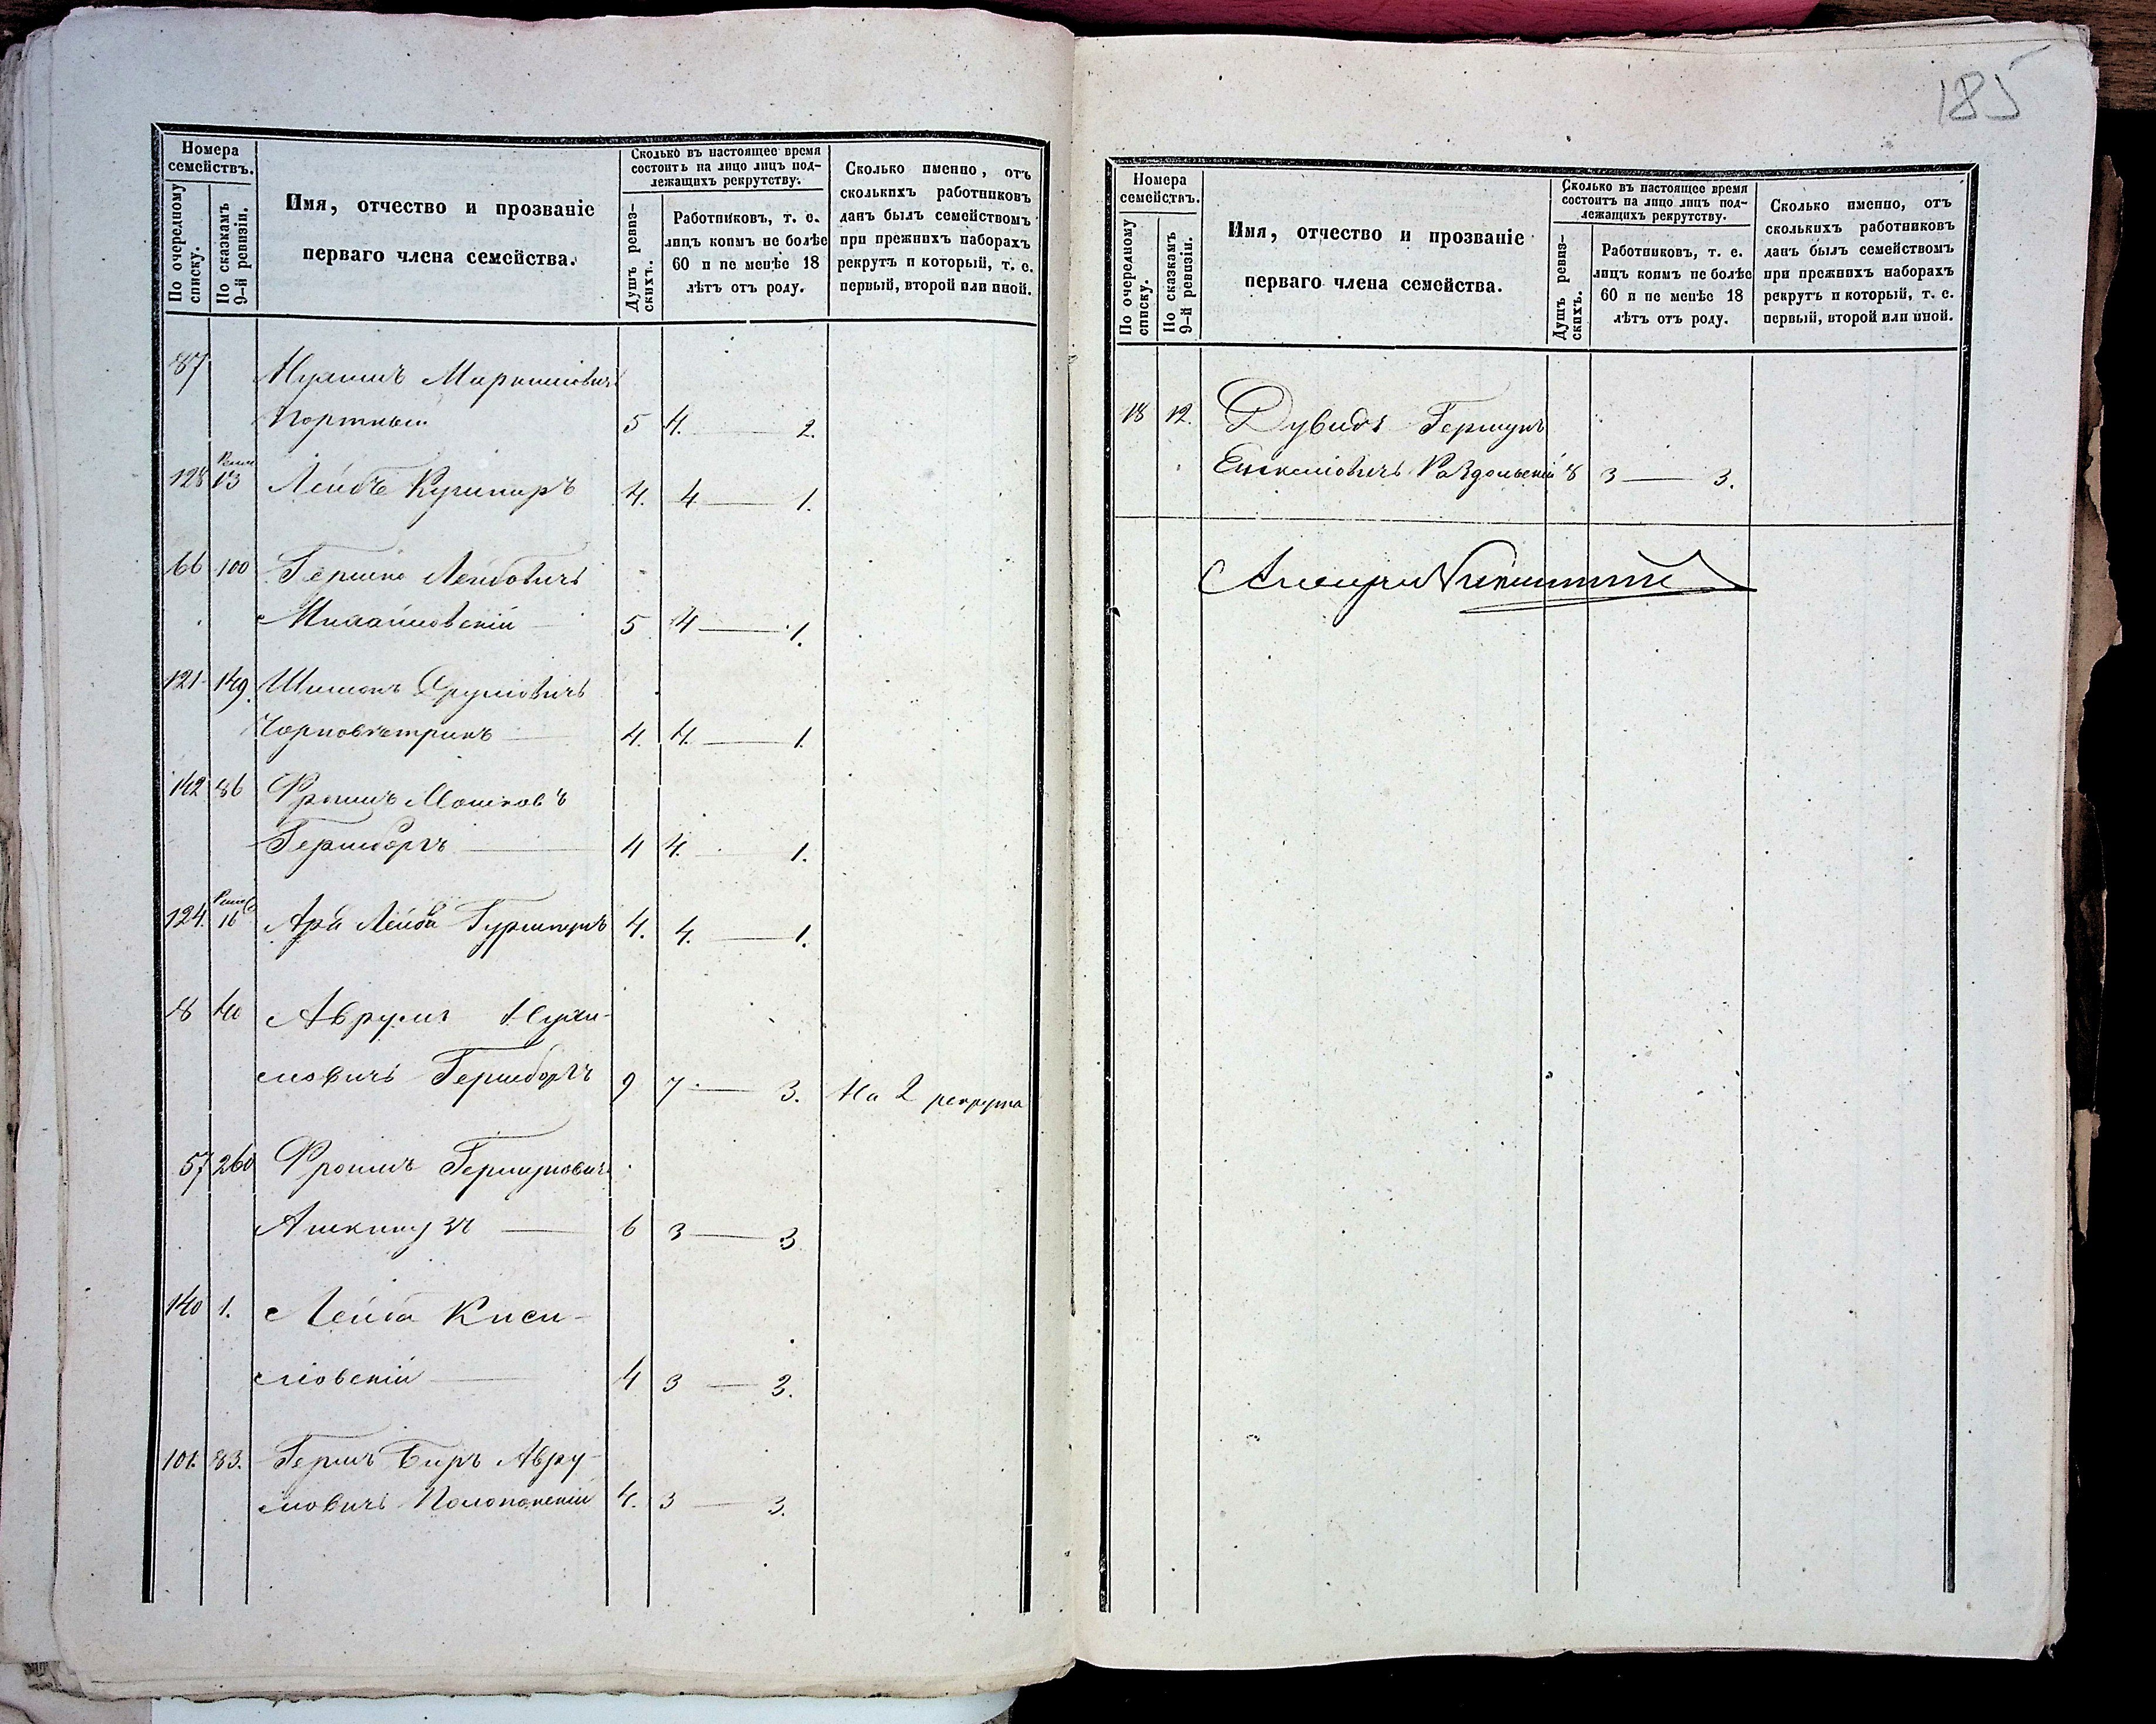 185
Номера семействъ.
По очередному списку.
По сказкамъ 9-й ревизіи.
Имя, отчество и прозваніе
перваго члена семейства.
Сколько въ настоящее время
состоитъ на лицо лицъ под-
лежащихъ рекрутству.
Душъ ревиз-
скихъ.
Работниковъ, т. е.
лицъ коимъ не болѣе
60 и не менѣе 18
лѣтъ отъ роду.
Сколько именно, отъ
сколькихъ работниковъ
данъ былъ семействомъ
при прежнихъ наборахъ
рекрутъ и который, т. е.
первый, второй или иной.
87
Портный 5 4. — 2.
128 13 Лейбъ Кушниръ 4. 4 — 1.
66 100 Гершко Лейбовичъ
Михайловскій — 5 4 — 1.
121 149. Шимонъ Сруловичъ
— 4. 4. — 1.
142 86 Фроимъ Мошковъ
Гершбергъ — 4 4. — 1.
124. 16 Лейба 4. 4. — 1.
8 40 Аврумъ Нухи-
мовичъ Гершбергъ 9 7 — 3. На 2 рекрута
57 260 Фроимъ Гершуновичъ
Ашкинузъ — 6 3 — 3
140 1. Лейба Киси-
левскій — 4 3 — 3.
101. 83. Гершъ Беръ Авру-
мовичъ 4. 3 — 3.
Номера семействъ.
По очередному списку.
По сказкамъ 9-й ревизіи.
Имя, отчество и прозваніе
перваго члена семейства.
Сколько въ настоящее время
состоитъ на лицо лицъ под-
лежащихъ рекрутству.
Душъ ревиз-
скихъ.
Работниковъ, т. е.
лицъ коимъ не болѣе
60 и не менѣе 18
лѣтъ отъ роду.
Сколько именно, отъ
сколькихъ работниковъ
данъ былъ семействомъ
при прежнихъ наборахъ
рекрутъ и который, т. е.
первый, второй или иной.
18 12. Дувидъ Гершунъ
Раздольскій 8 3 — 3.